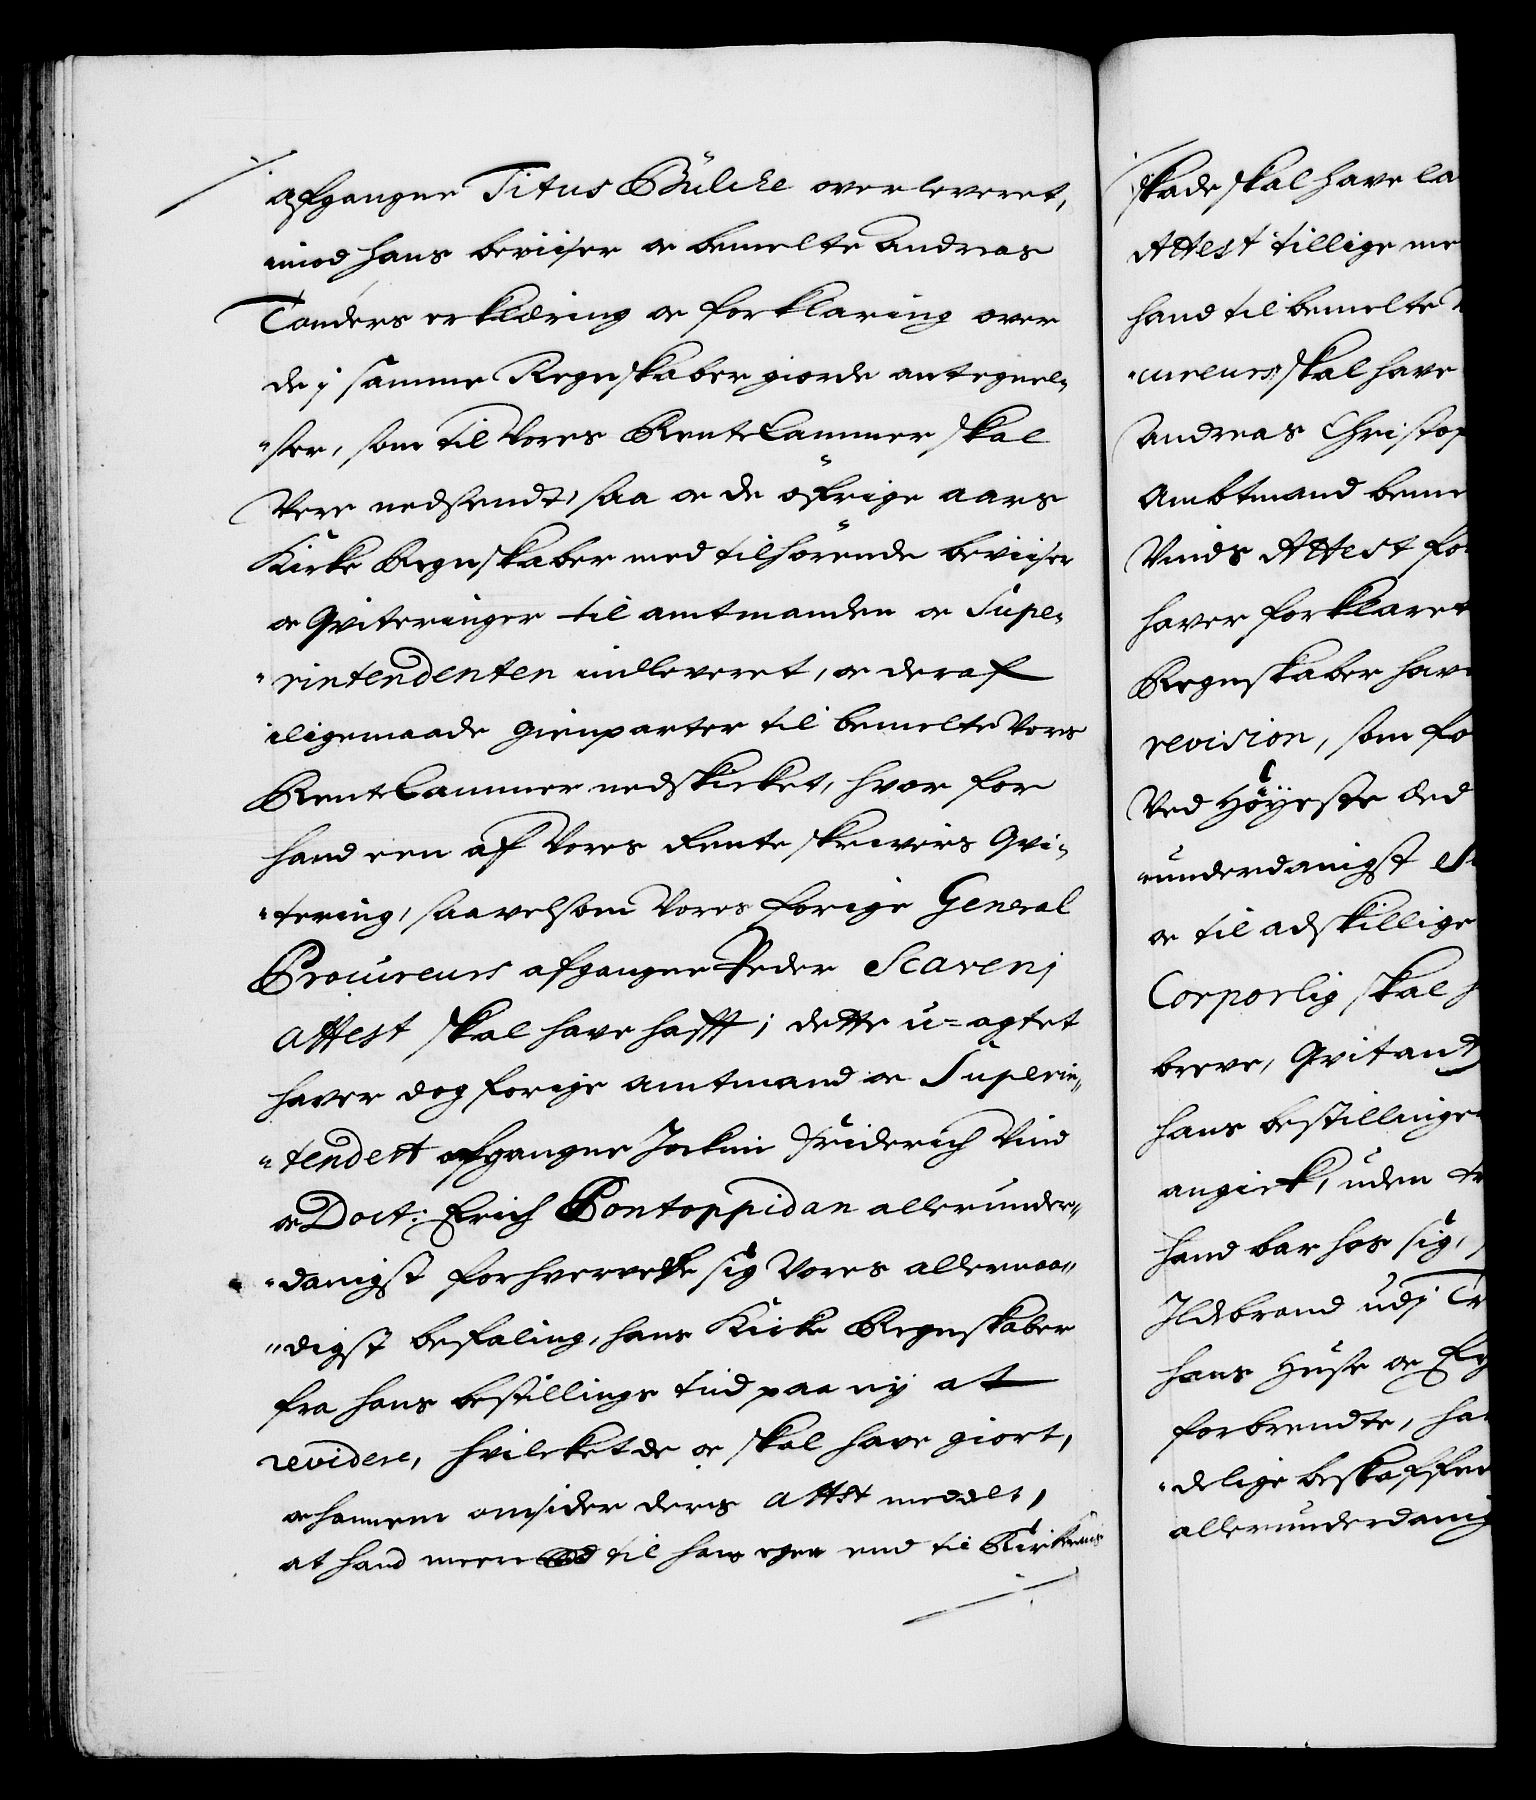 afgangne Titus Bülche overleveret,
imod hans beviiser oc bemelte Andreas
Tonders erklæring oc forklaring over
de j samme Regnskaber giorde antegnel-
"ser, som til Vores RenteCammer skal
Vere nedsendt, saa oc de öfrige aars
Kirke Regnskaber med tilhörende beviiser
oc Qviteringer til amtmanden oc Supe-
"rintendenten indleveret, oc deraf
iligemaade gienparter til bemelte Vores
RenteCammer nedskicket, hvor for
hand een af Vores Rente skrivers Qvi-
"tering, saavelsom Vores forige General
Procureurs afgangne Peder Scavenj
Attest skal have hafft; dette u-agtet
haver dog forige amtmand oc Superin-
"tendett afgangne Jochim Friderich Vind
oc Doct: Erich Pontoppidan allerunder-
"danigst forhvervede sig Vores allernaa-
"digst befaling, hans Kirke Regnskaber
fra hans bestillings tiid paa nÿ at
revidere, hvilcket de oc skal have giort,
oc hannem omsider deris Attest meddelt,
at hand meere til hans egen end til Kirkernis
skade skal have la
Attest tillige me
hand til bemelte
"cureurs skal have
Andreas Christof
Ambtmand beme
Vinds Attest for
haver forklaret
Regnskaber hav
revision, som fo
Ved Höÿeste Eed
"underdanigst
oc til adskillige
Corporlig skal h
breve, Qvitant
hans bestillinge
angick, uden
hand bar hos sig,
Ildebrand udj Tr
hans Huse oc
forbrendte, ha
"delige beskaffen
allerunderdanig